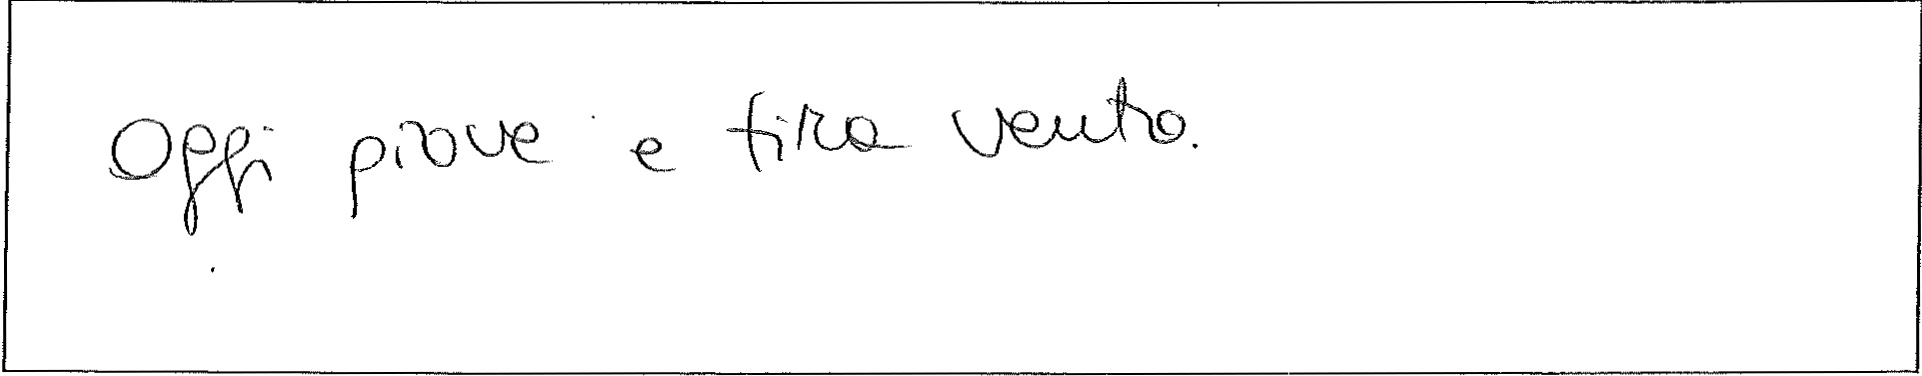 Oggi piove e tira vento.